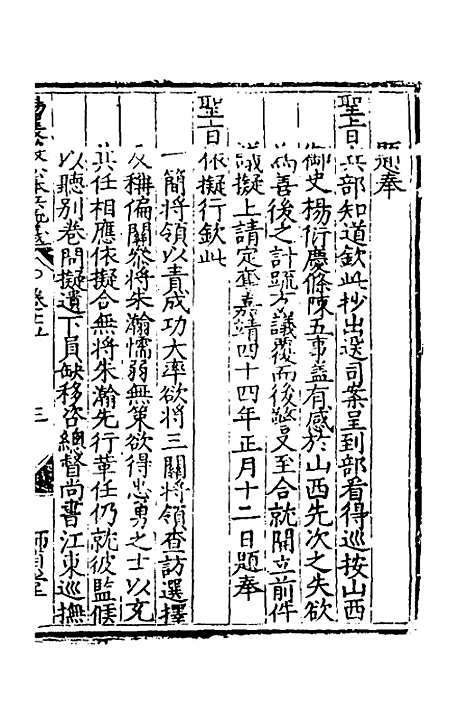 題奉
聖旨兵部知道欽此抄出送司案呈到部看得巡按山西
御史楊衍慶條陳五事蓋有感於山西先次之失欲
為善後之計疏方議覆而後警又至合就開立前件
議擬上請定奪嘉靖四十四年正月十二日題奉
聖旨依擬行欽此
一簡將領以責成功大率欲將三關將領查訪選擇
及稱偏關參將朱瀚懦弱無策欲得忠勇之士以充
其任相應依擬合無將朱瀚先行革任仍就彼監候
以聽別卷問擬遺下員缺移咨總督尚書江東巡撫
三